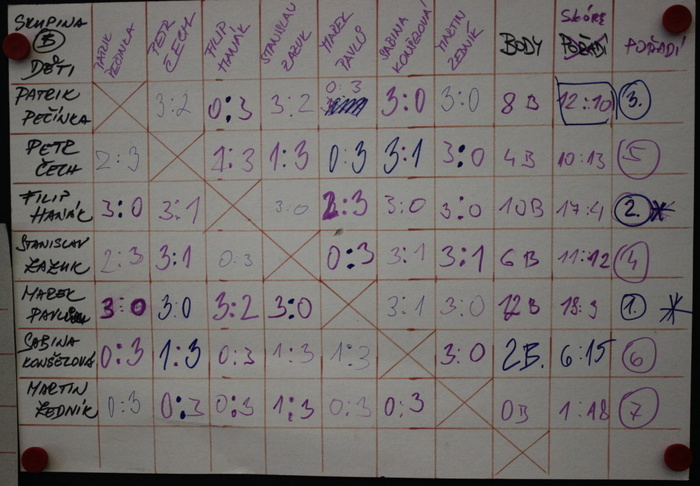 SKUPINA
B
DĚTI
PATRIK PEČINKA
PETR ČECH
FILIP HANÁK
STANISLAV ZAZUK
MAREK PAVLŮ
SABINA KONŠELOVÁ
MARTIN ŽEDNÍK
BODY
SKÓRE
POŘADÍ
POŘADÍ
PATRIK PEČINKA 3:2 0:3 3:2 0:3 3:0 3:0 8 B 12:10 3.
PETR ČECH 2:3 1:3 1:3 0:3 3:1 3:0 4 B 10:13 5
FILIP HANÁK 3:0 3:1 3:0 2:3 3:0 3:0 10 B 17:4 2.*
STANISLAV ZAZUK 2:3 3:1 0:3 0:3 3:1 3:1 6 B 11:12 4
MAREK 3:0 3:0 3:2 3:0 3:1 3:0 12 B 18:3 1. *
SABINA KONŠELOVÁ 0:3 1:3 0:3 1:3 1:3 3:0 2B. 6:15 6
MARTIN ŽEDNÍK 0:3 0:3 0:3 1:3 0:3 0:3 0B 1:18 7